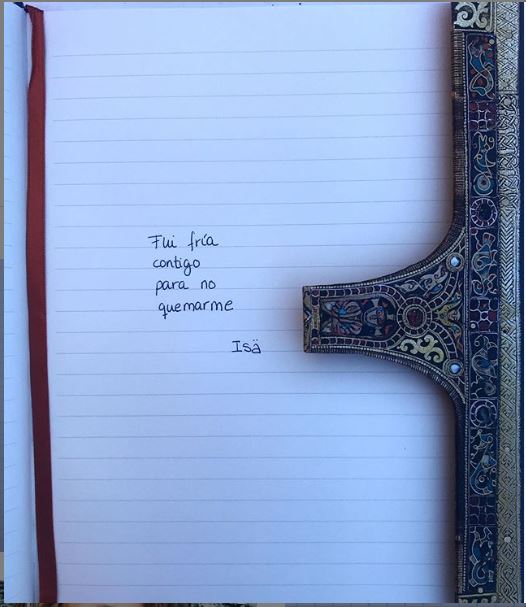 Fui fría
contigo
para no
quemarme
Isä